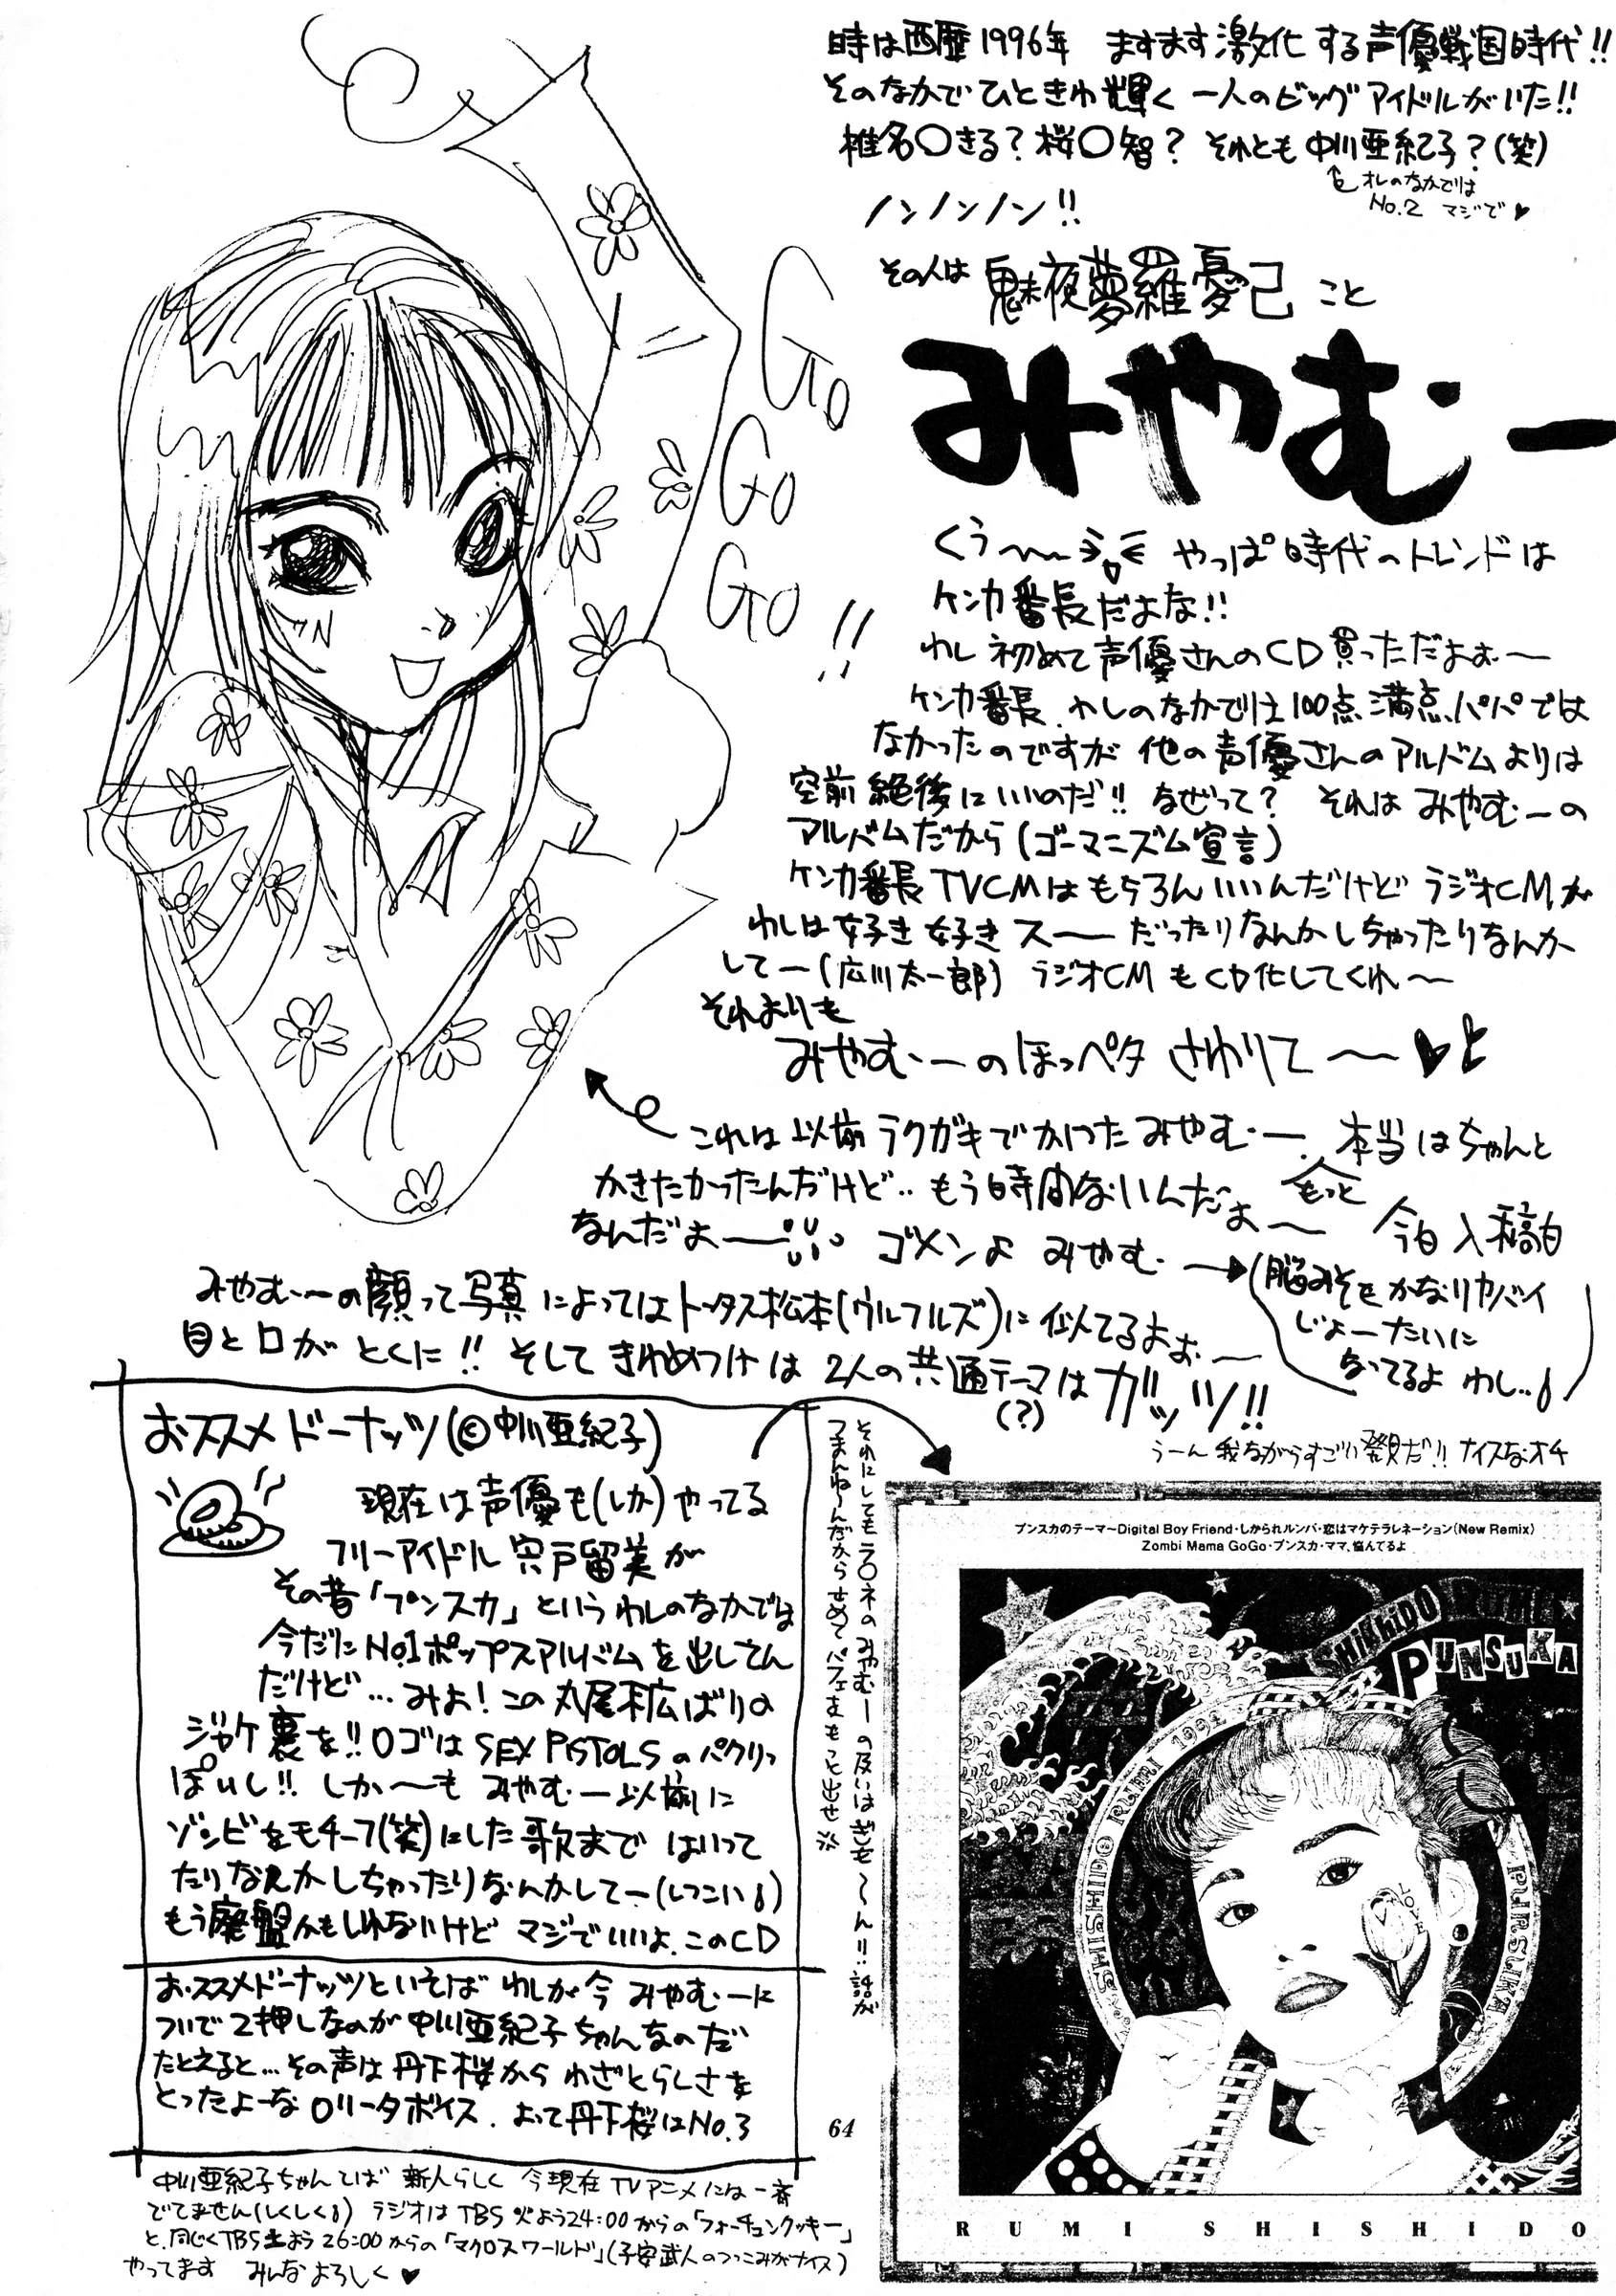 時は西暦1996年 ますます激化する声優戦国時代!!
そのなかでひときわ輝く一人のビッグアイドルがいた!!
椎名〇きる?桜〇智? それとも中川亜紀子?(笑)
オレのなかでは
No.2 マジで♥
ノンノンノン!!
その人は 魅夜夢羅憂己 こと
みやむー
Go
Go
Go
!!
くぅ〜 やっぱ時代のトレンドは
ケンカ番長だよな!!
わし初めて声優さんのCD買っただよぉ〜
ケンカ番長、わしのなかでは100点満点パパでは
なかったのですが 他の声優さんのアルバムよりは
空前絶後にいいのだ!! なぜって? それはみやむーの
アルバムだから(ゴーマニズム宣言)
ケンカ番長TVCMはもちろんいいんだけど ラジオCMが
わしは好き好きスー だったりなんかしちゃったりなんか
してー(広川太一郎) ラジオCMもCD化してくれ〜
それよりも
みやむーのほっペタ さわりてー〜♥
これは以前ラクガキでかいたみやむー、本当はちゃんと
かきたかったんだけど‥もう時間ないんだよ〜
もっと
なんだよー ゴメンよ みやむー
今日入稿日
(脳みそもかなりヤバイ
じょーたいに
なってるよ わし‥)
みやむーの顔って写真によってはトータス松本(ウルフルズ)に似てるよぉ〜
目と口がとくに!! そして きわめつけは 2人の共通テーマはガッツ!!
(?)
うーん 我ながらすごい発見だ!! ナイスなオチ
おススメドーナッツ(©中川亜紀子)
現在は声優も(しか)やってる
フリーアイドル 宍戸留美が
その昔「プンスカ」というわしのなかでは
今だにNo.1ポップスアルバムを出してん
だけど…みよ!この丸尾末広ばりの
ジャケ裏を!!ロゴはSEX PISTOLSのパクリっ
ぽいし!! しか〜も みやむー以前に
ゾンビをモチーフ(笑)にした歌まで はいって
たりなんかしちゃったりなんかしてー(しつこい)
もう廃盤かもしれないけど マジでいいよ、このCD
おススメドーナッツといえば わしが今 みやむーに
ついで2押しなのが中川亜紀子ちゃんなのだ
たとえると…その声は丹下桜から わざとらしさを
とったよーなロリータボイス、よって丹下桜はNo.3
中川亜紀子ちゃんてば 新人らしく 今現在TVアニメには一番
でてません(しくしく) ラジオはTBS火よう24:00からの「フォーチュンクッキー」
と、同じくTBS土よう26:00からの「マクロスワールド」(子安武人のつっこみがナイス)
やってます みんなよろしく♥
それにしてもラ〇ネのみやむーの扱いはぎも〜ん!!話が
つまんね〜んだからせめてパフェをもっと出せ※
64
プンスカのテーマ〜Digital Boy Friend・しかられルンバ・恋はマケテラレネーション(New Remix)
Zombi Mama GoGo・プンスカ・ママ、悩んでるよ
SHISHIDO RUMI
PUNSUKA
SHISHIDO RUMI 1992
PUNSUKA
LOVE
RUMI SHISHIDO